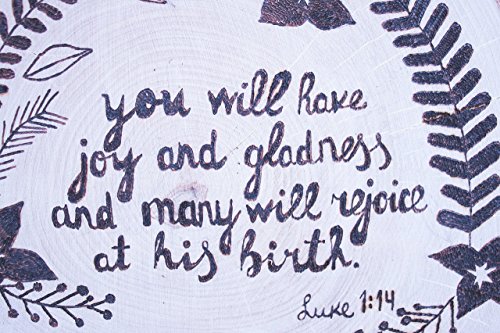 you will have
joy and gladness
and many will rejoice
at his birth.
Luke 1:14